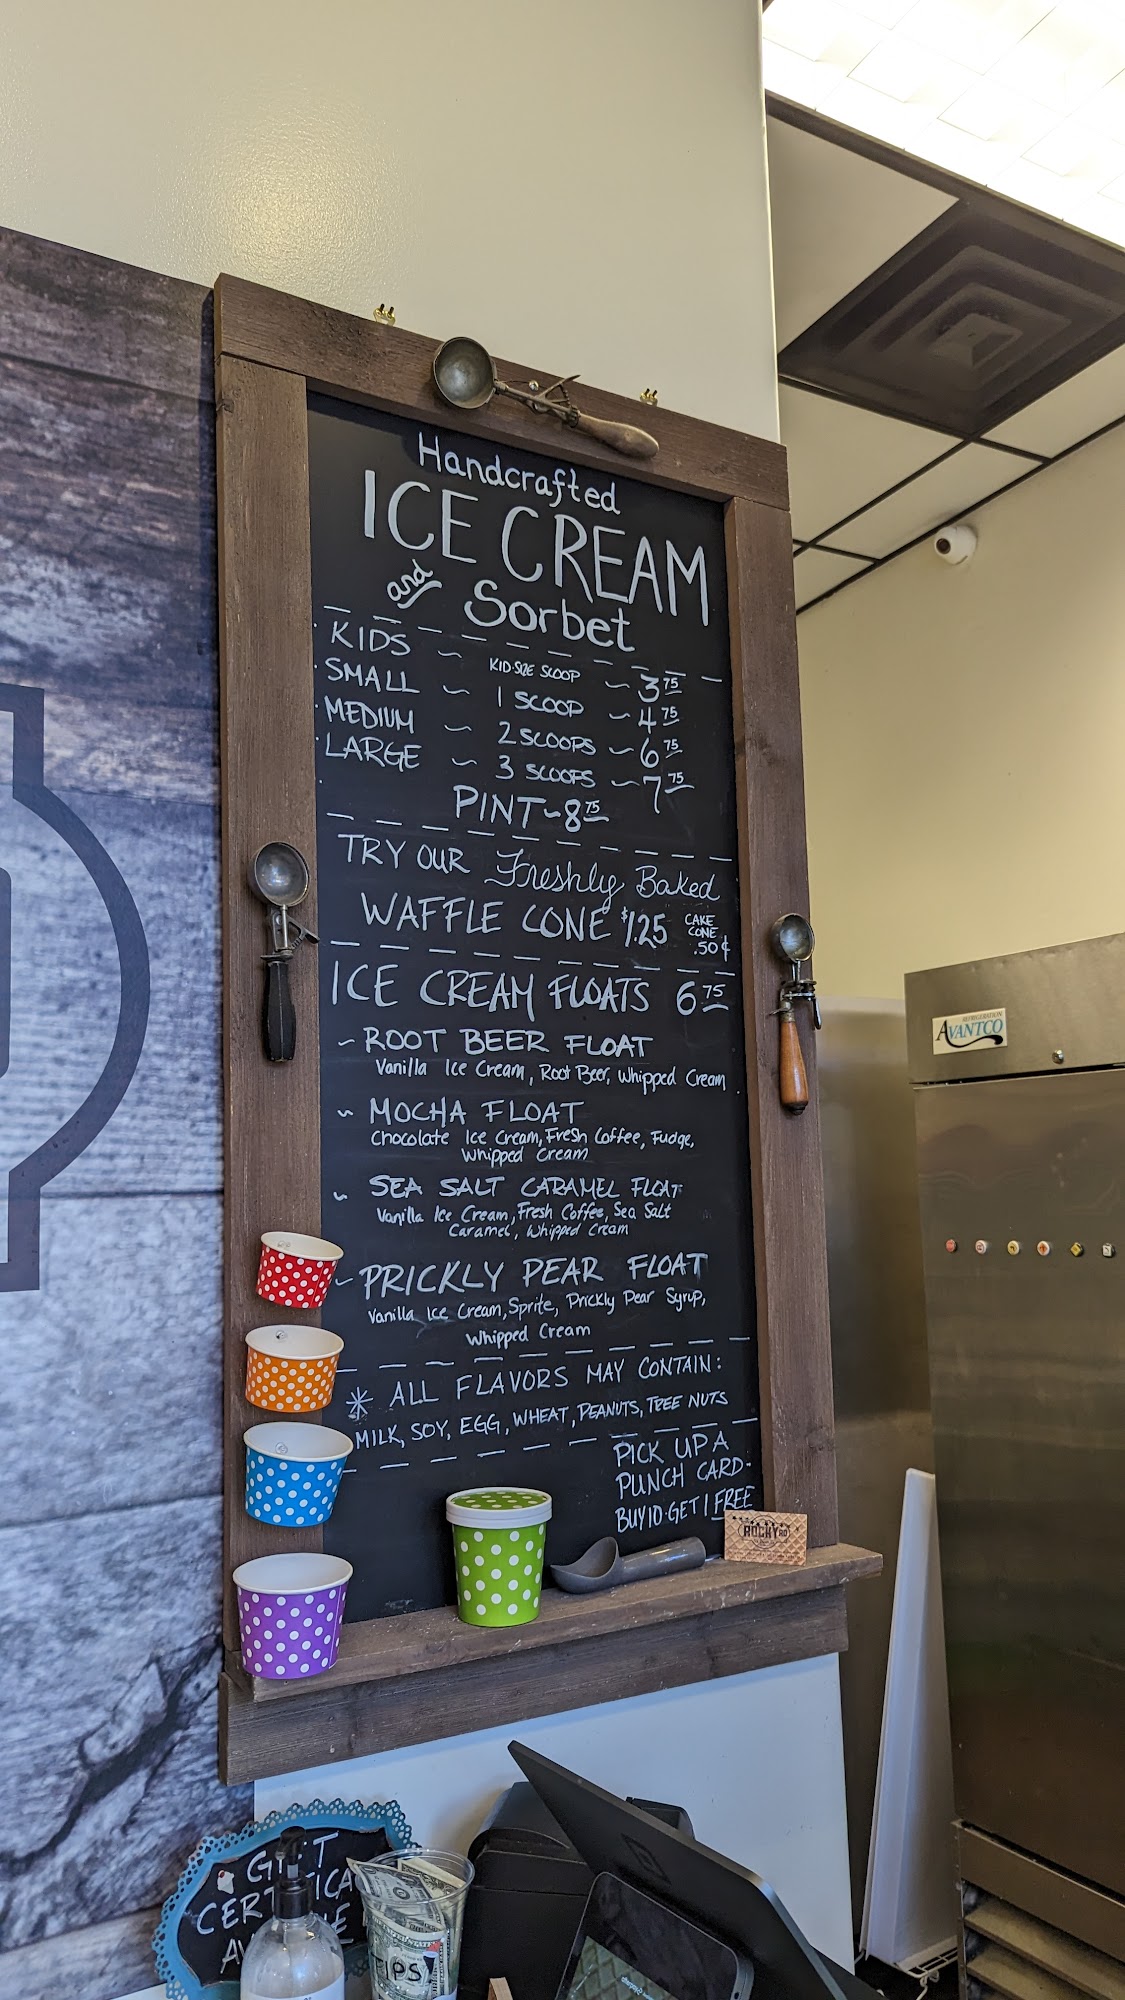 Handcrafted
ICE CREAM
and Sorbet
KIDS ~ KID-SIZE SCOOP ~ 3 75
SMALL ~ 1 SCOOP ~ 4 75
MEDIUM ~ 2 SCOOPS ~ 6 75
LARGE ~ 3 SCOOPS ~ 7 75
PINT ~ 8 75
TRY OUR Freshly Baked
WAFFLE CONE $1.25 CAKE CONE .50¢
ICE CREAM FLOATS 6 75
~ ROOT BEER FLOAT
Vanilla Ice Cream, Root Beer, Whipped Cream
~ MOCHA FLOAT
Chocolate Ice Cream, Fresh Coffee, Fudge,
Whipped Cream
~ SEA SALT CARAMEL FLOAT
Vanilla Ice Cream, Fresh Coffee, Sea Salt
Caramel, Whipped Cream
~ PRICKLY PEAR FLOAT
Vanilla Ice Cream, Sprite, Prickly Pear Syrup,
Whipped Cream
* ALL FLAVORS MAY CONTAIN:
MILK, SOY, EGG, WHEAT, PEANUTS, TREE NUTS
PICK UP A
PUNCH CARD-
BUY 10-GET 1 FREE
ROCKY RD
REFRIGERATION
AVANTCO
GIFT
TIPS